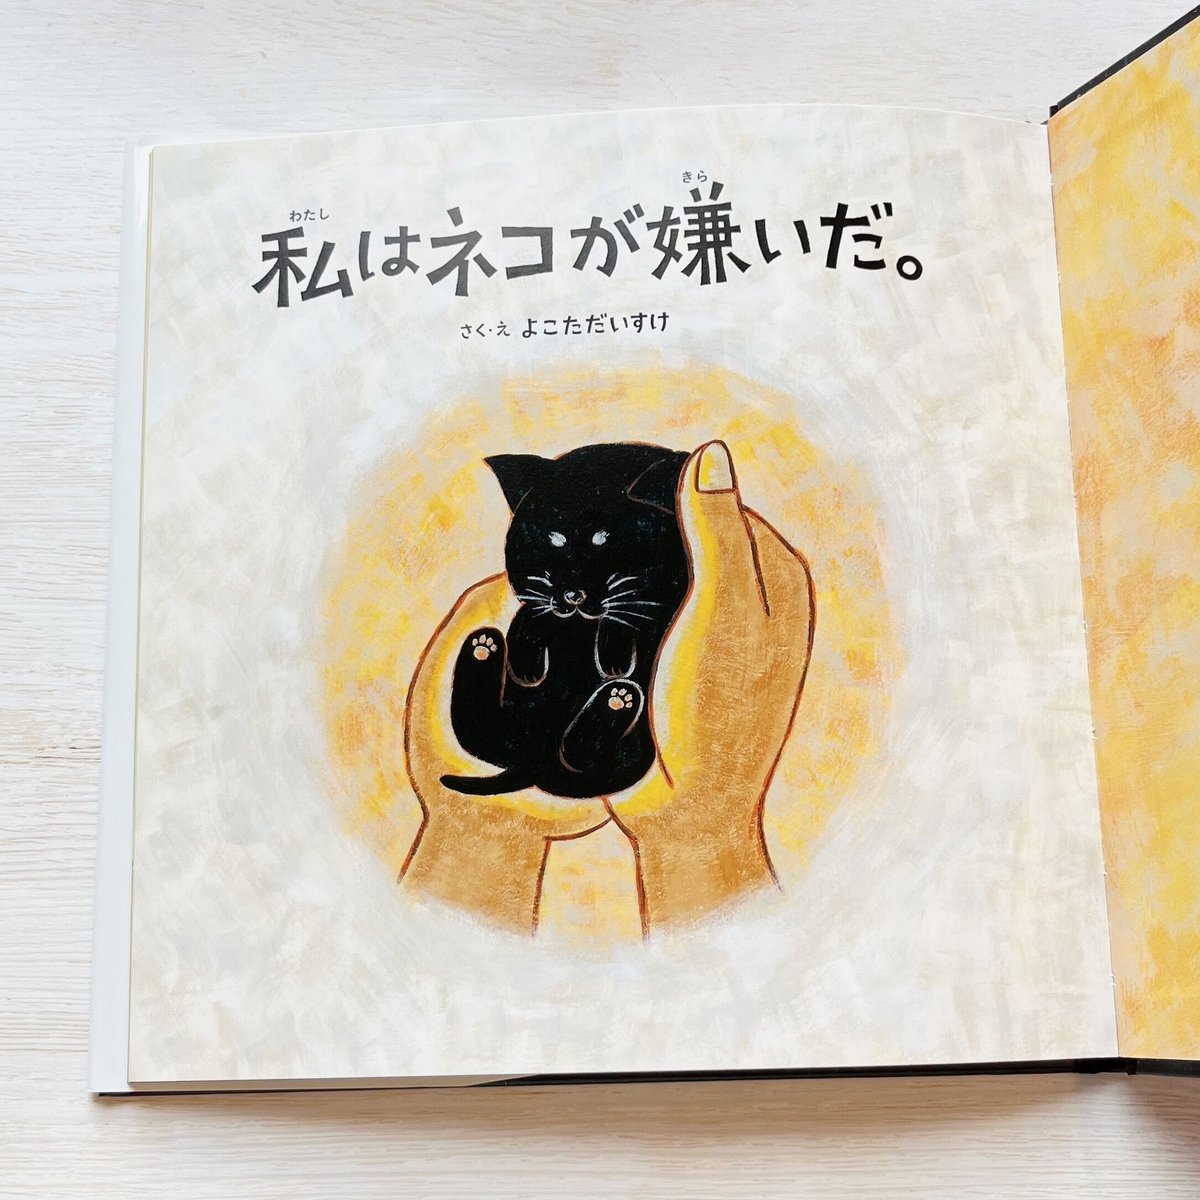 私はネコが嫌いだ。
わたし
きら
さく・え よこただいすけ